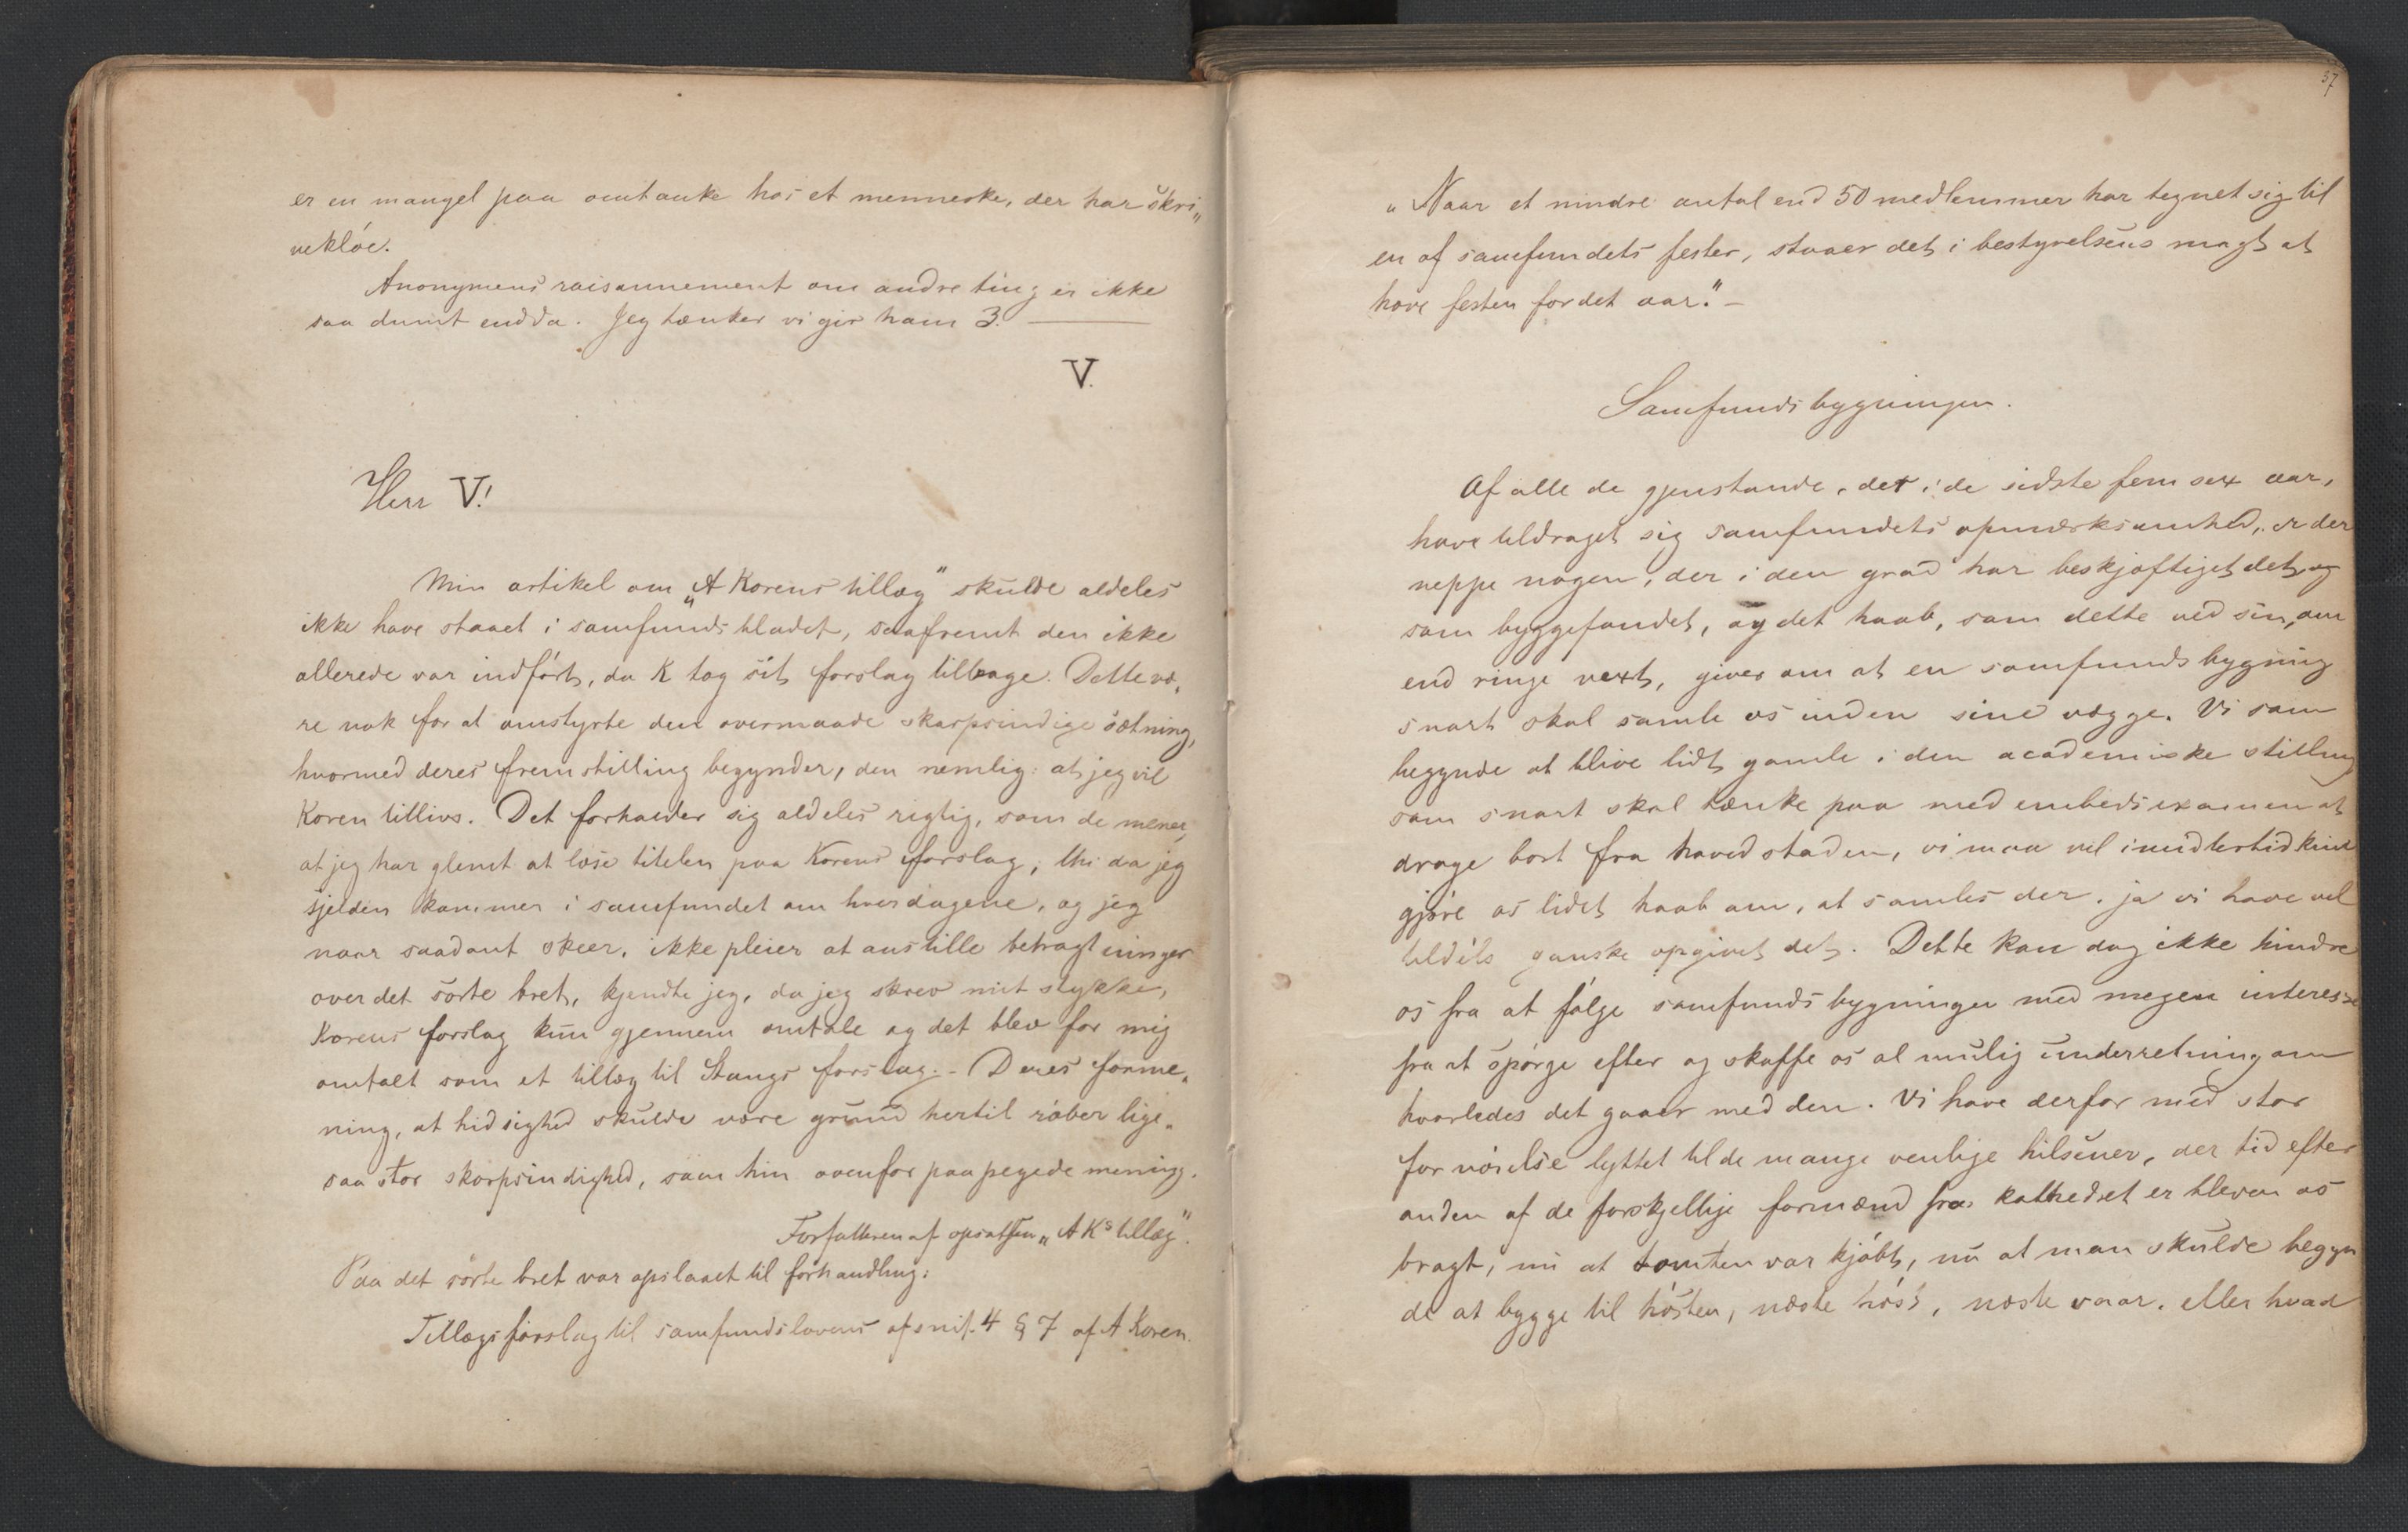 er en mangel paa omtanke hos et menneske, der har skri„
vekløe.
Anonymens raisonnement om andre ting er ikke
saa dumt endda. Jeg tænker vi gir ham 3. —
V.
Herr V!
Min artikel om „A Korens tillæg" skulde aldeles
ikke have staaet i samfundsbladet, saafremt den ikke
allerede var indført, da K tog sit forslag tilbage. Dette væ„
re nok for at omstyrte den overmaade skarpsindige sætning,
hvormed deres fremstilling begynder, den nemlig: at jeg vil
Koren tillivs. Det forholder sig aldeles rigtig, som de mener,
at jeg har glemt at læse titelen paa Korens forslag; thi da jeg
sjelden kommer i samfundet om hverdagene, og jeg
naar saadant skeer, ikke pleier at anstille betragtninger
over det sorte bret, kjendte jeg, da jeg skrev mit stykke,
Korens forslag kun gjennem omtale og det blev for mig
omtalt som et tillæg til Stangs forslag. - Deres forme„
ning, at hidsighed skulde være grund hertil røber lige„
saa stor skarpsindighed, som hin ovenfor paapegede mening.
Forfatteren af opsatsen „A Ks tillæg".
Paa det sorte bret var opslaaet til forhandling:
Tillægsforslag til samfundslovens afsnit 4 § 7 af A Koren.
37
„Naar et mindre antal end 50 medlemmer har tegnet sig til
en af samfundets fester, staaer det i bestyrelsens magt at
hæve festen for det aar." —
Samfundsbygningen.
Af alle de gjenstande, der i de sidste fem sex aar,
have tildraget sig samfundets opmærksomhed, er der
neppe nogen, der i den grad har beskjæftiget det, og
som byggefondet, og det haab, som dette ved sin, om
end ringe vext, giver om at en samfundsbygning
snart skal samle os inden sine vægge. Vi som
begynde at blive lidt gamle i den academiske stilling
som snart skal tænke paa med embedsexamen at
drage bort fra hovedstaden, vi maa vel imidlertid kun
gjøre os lidet haab om, at samles der, ja vi have vel
tildels ganske opgivet det. Dette kan dog ikke hindre
os fra at følge samfundsbygningen med megen interesse
fra at spørge efter og skaffe os al mulig underretning om
hvorledes det gaaer med den. Vi have derfor med stor
fornøielse lyttet til de mange venlige hilsener, der tid efter
anden af de forskjellige formænd fra kathedret er bleven os
bragt, nu at tomten var kjøbt, nu at man skulde begyn
de at bygge til høsten, næste høst, næste vaar, eller hvad